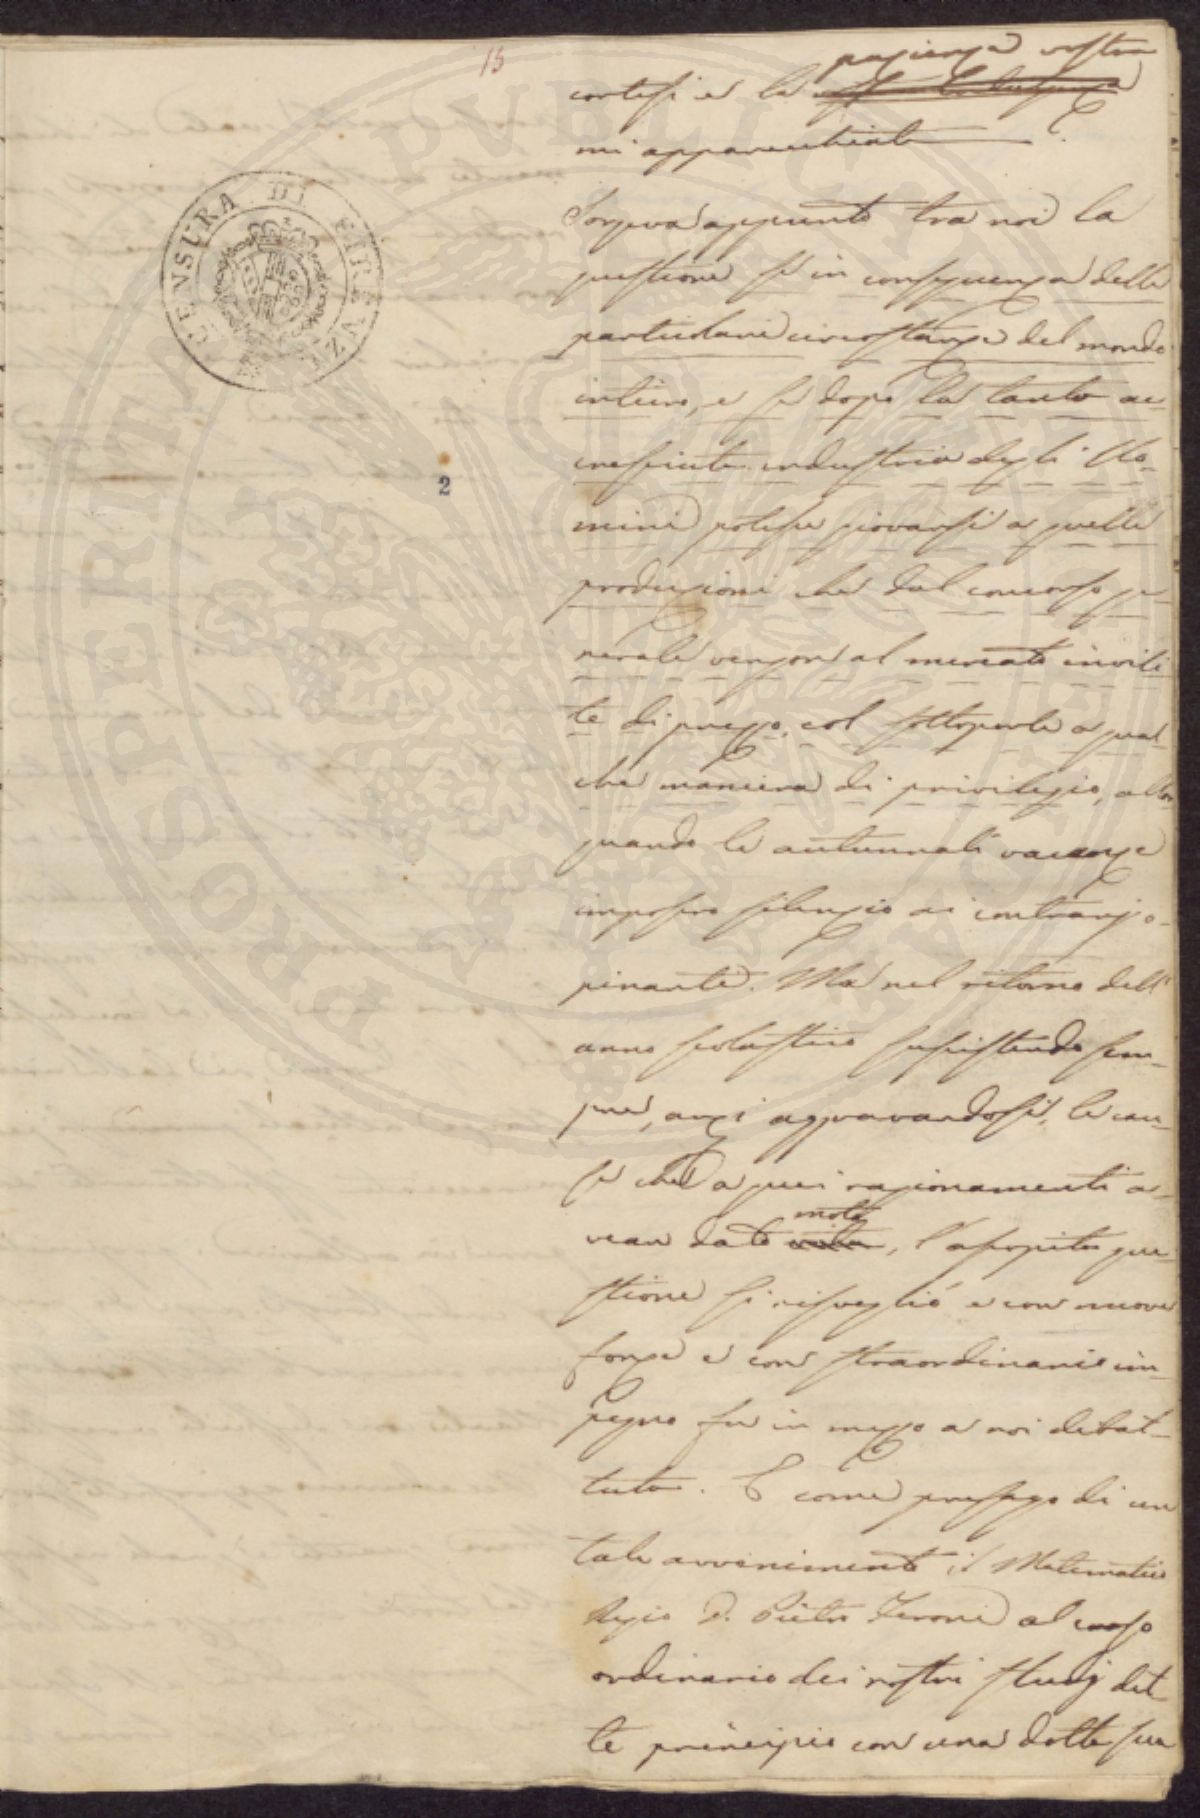 15
pazienza vostra
cortesi e la
mi apparecchiate
Sorgeva appunto tra noi la
questione se in conseguenza delle
particolari circostanze del mondo
intiero, e se dopo la tanto ac-
cresciuta industria degli Uo-
mini potesse giovarsi a quelle
produzioni che dal concorso ge-
nerale vengon al mercato invili
te di prezzo, col sottoporle a qual
che maniera di privilegio, allor
quando le autunnali vacanze
imposero silenzio ai contrarj o-
pinanti. Ma nel ritorno dell'
anno scolastico sussistendo sem-
pre, anzi aggravandosi, le cau-
se che a quei ragionamenti a-
moto
vean dato vita, l'assopita que-
stione si risvegliò e con nuove
forze e con straordinario im-
pegno fu in mezzo a noi debat-
tuta. E come presago di un
tale avvenimento il Matematico
Regio D. Pietro Ferroni al corso
ordinario dei nostri studj det-
te principio con una dotta sua
CENSURA DI FIRENZE
2
PROSPERITATI PUBLICAE AUGENDAE